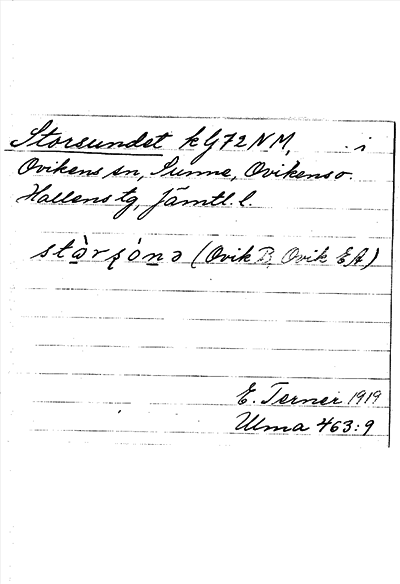 Storsundet k G72NM, i
Ovikens sn, Sunne, Ovikens o.
Hallens tg, Jämtl. l.
stàrʂónə (Ovik B, Ovik EA)
E. Terner 1919
Ulma 463:9